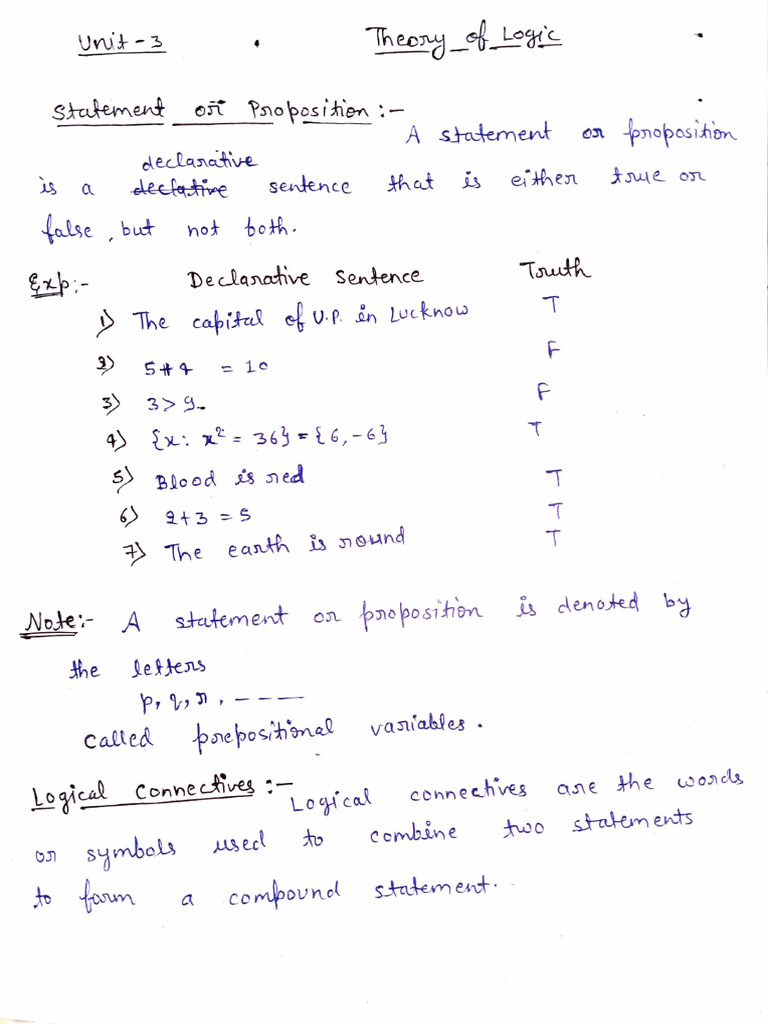 Unit-3 Theory of Logic
Statement or Proposition :-
A statement or proposition
declarative
is a declative sentence that is either true or
false, but not both.
Exp:- Declarative Sentence Truth
1) The capital of U.P. in Lucknow T
2) 5+4 = 10 F
3) 3>9. F
4) {x: x² = 36} = {6,-6} T
5) Blood is red T
6) 2+3 = 5 T
7) The earth is round T
Note:- A statement or proposition is denoted by
the letters
p, q, r, ----
called prepositional variables.
Logical Connectives :-
Logical connectives are the words
or symbols used to combine two statements
to form a compound statement.